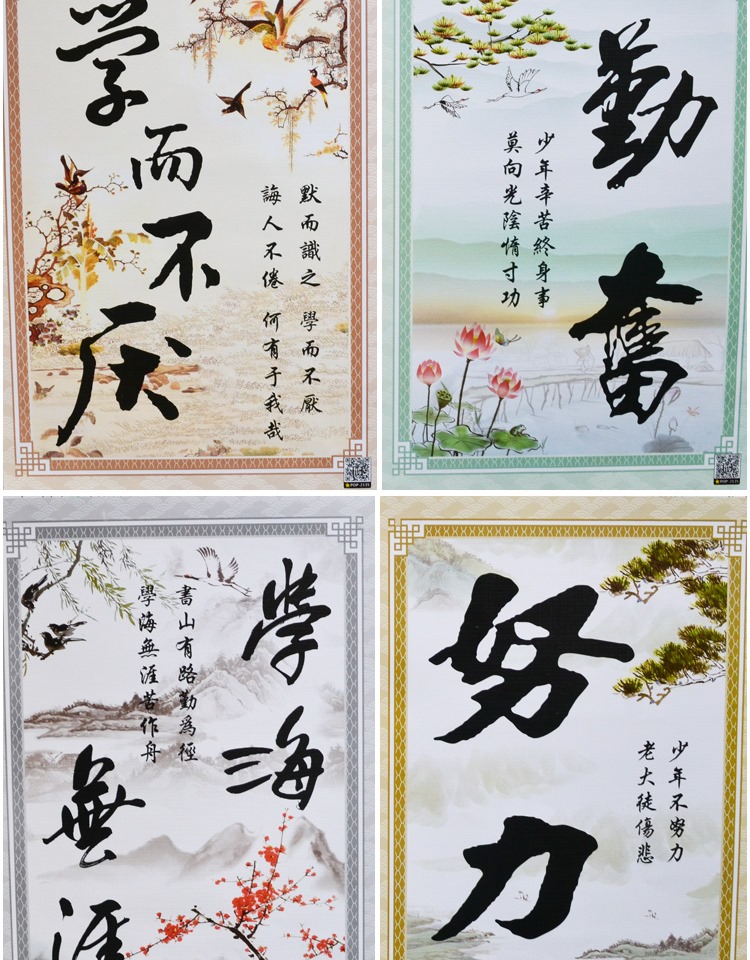 学而不厌
默而識之 學而不厭
誨人不倦 何有于我哉
POP-2135
勤奮
少年辛苦終身事
莫向光陰惰寸功
POP-2135
學海
無涯
書山有路勤為徑
學海無涯苦作舟
努力
少年不努力
老大徒傷悲